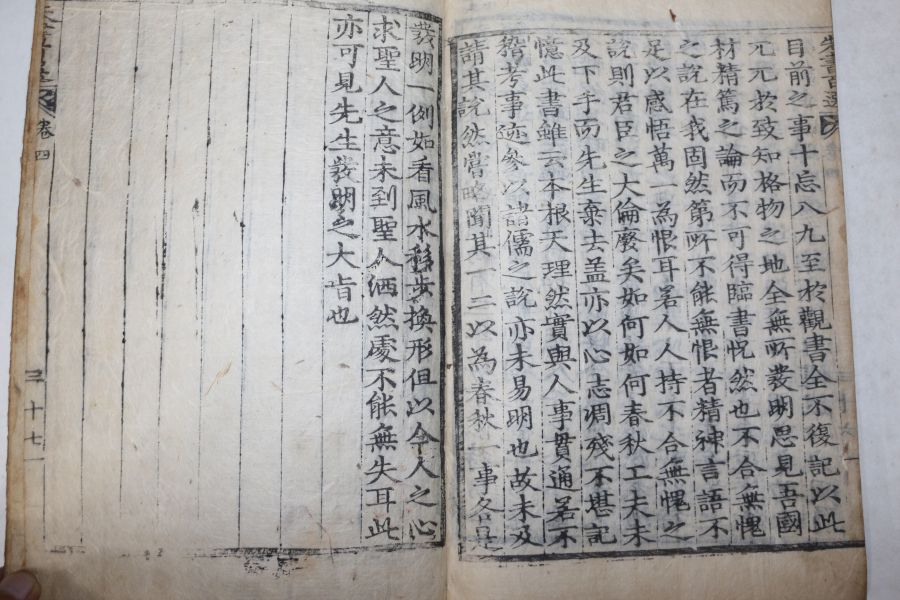 朱書百選
目前之事十忘八九至於觀書全不復記以此
元元於致知格物之地全無所發明思見吾國
材精篤之論而不可得臨書怳然也不合無愧
之說在我固然第所不能無恨者精神言語不
足以感悟萬一為恨耳若人人持不合無愧之
說則君臣之大倫廢矣如何如何春秋工夫未
及下手而先生棄去盖亦以心志凋殘不堪記
憶此書雖云本根天理然實與人事貫通若不
稽考事迹參以諸儒之說亦未易明也故未及
請其說然嘗略聞其一二以為春秋一事各是
發明一例如看風水移步換形但以今人之心
求聖人之意未到聖人洒然處不能無失耳此
亦可見先生發明之大旨也
卷四
十七